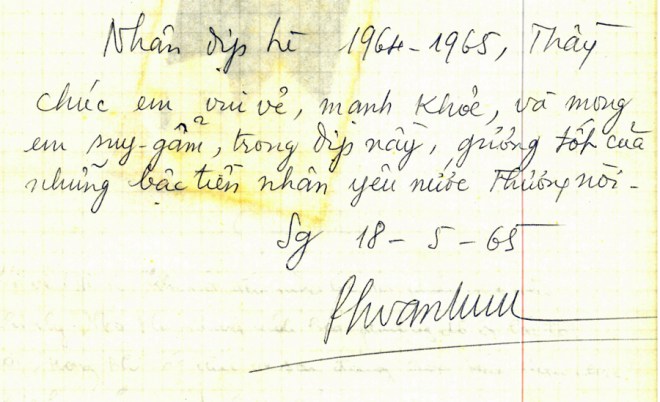 Nhân dịp hè 1964-1965, Thầy
chúc em vui vẻ, mạnh khỏe, và mong
em suy-gẫm, trong dịp này, gương tốt của
những bậc tiền nhân yêu nước thương nòi-
Sg 18-5-65